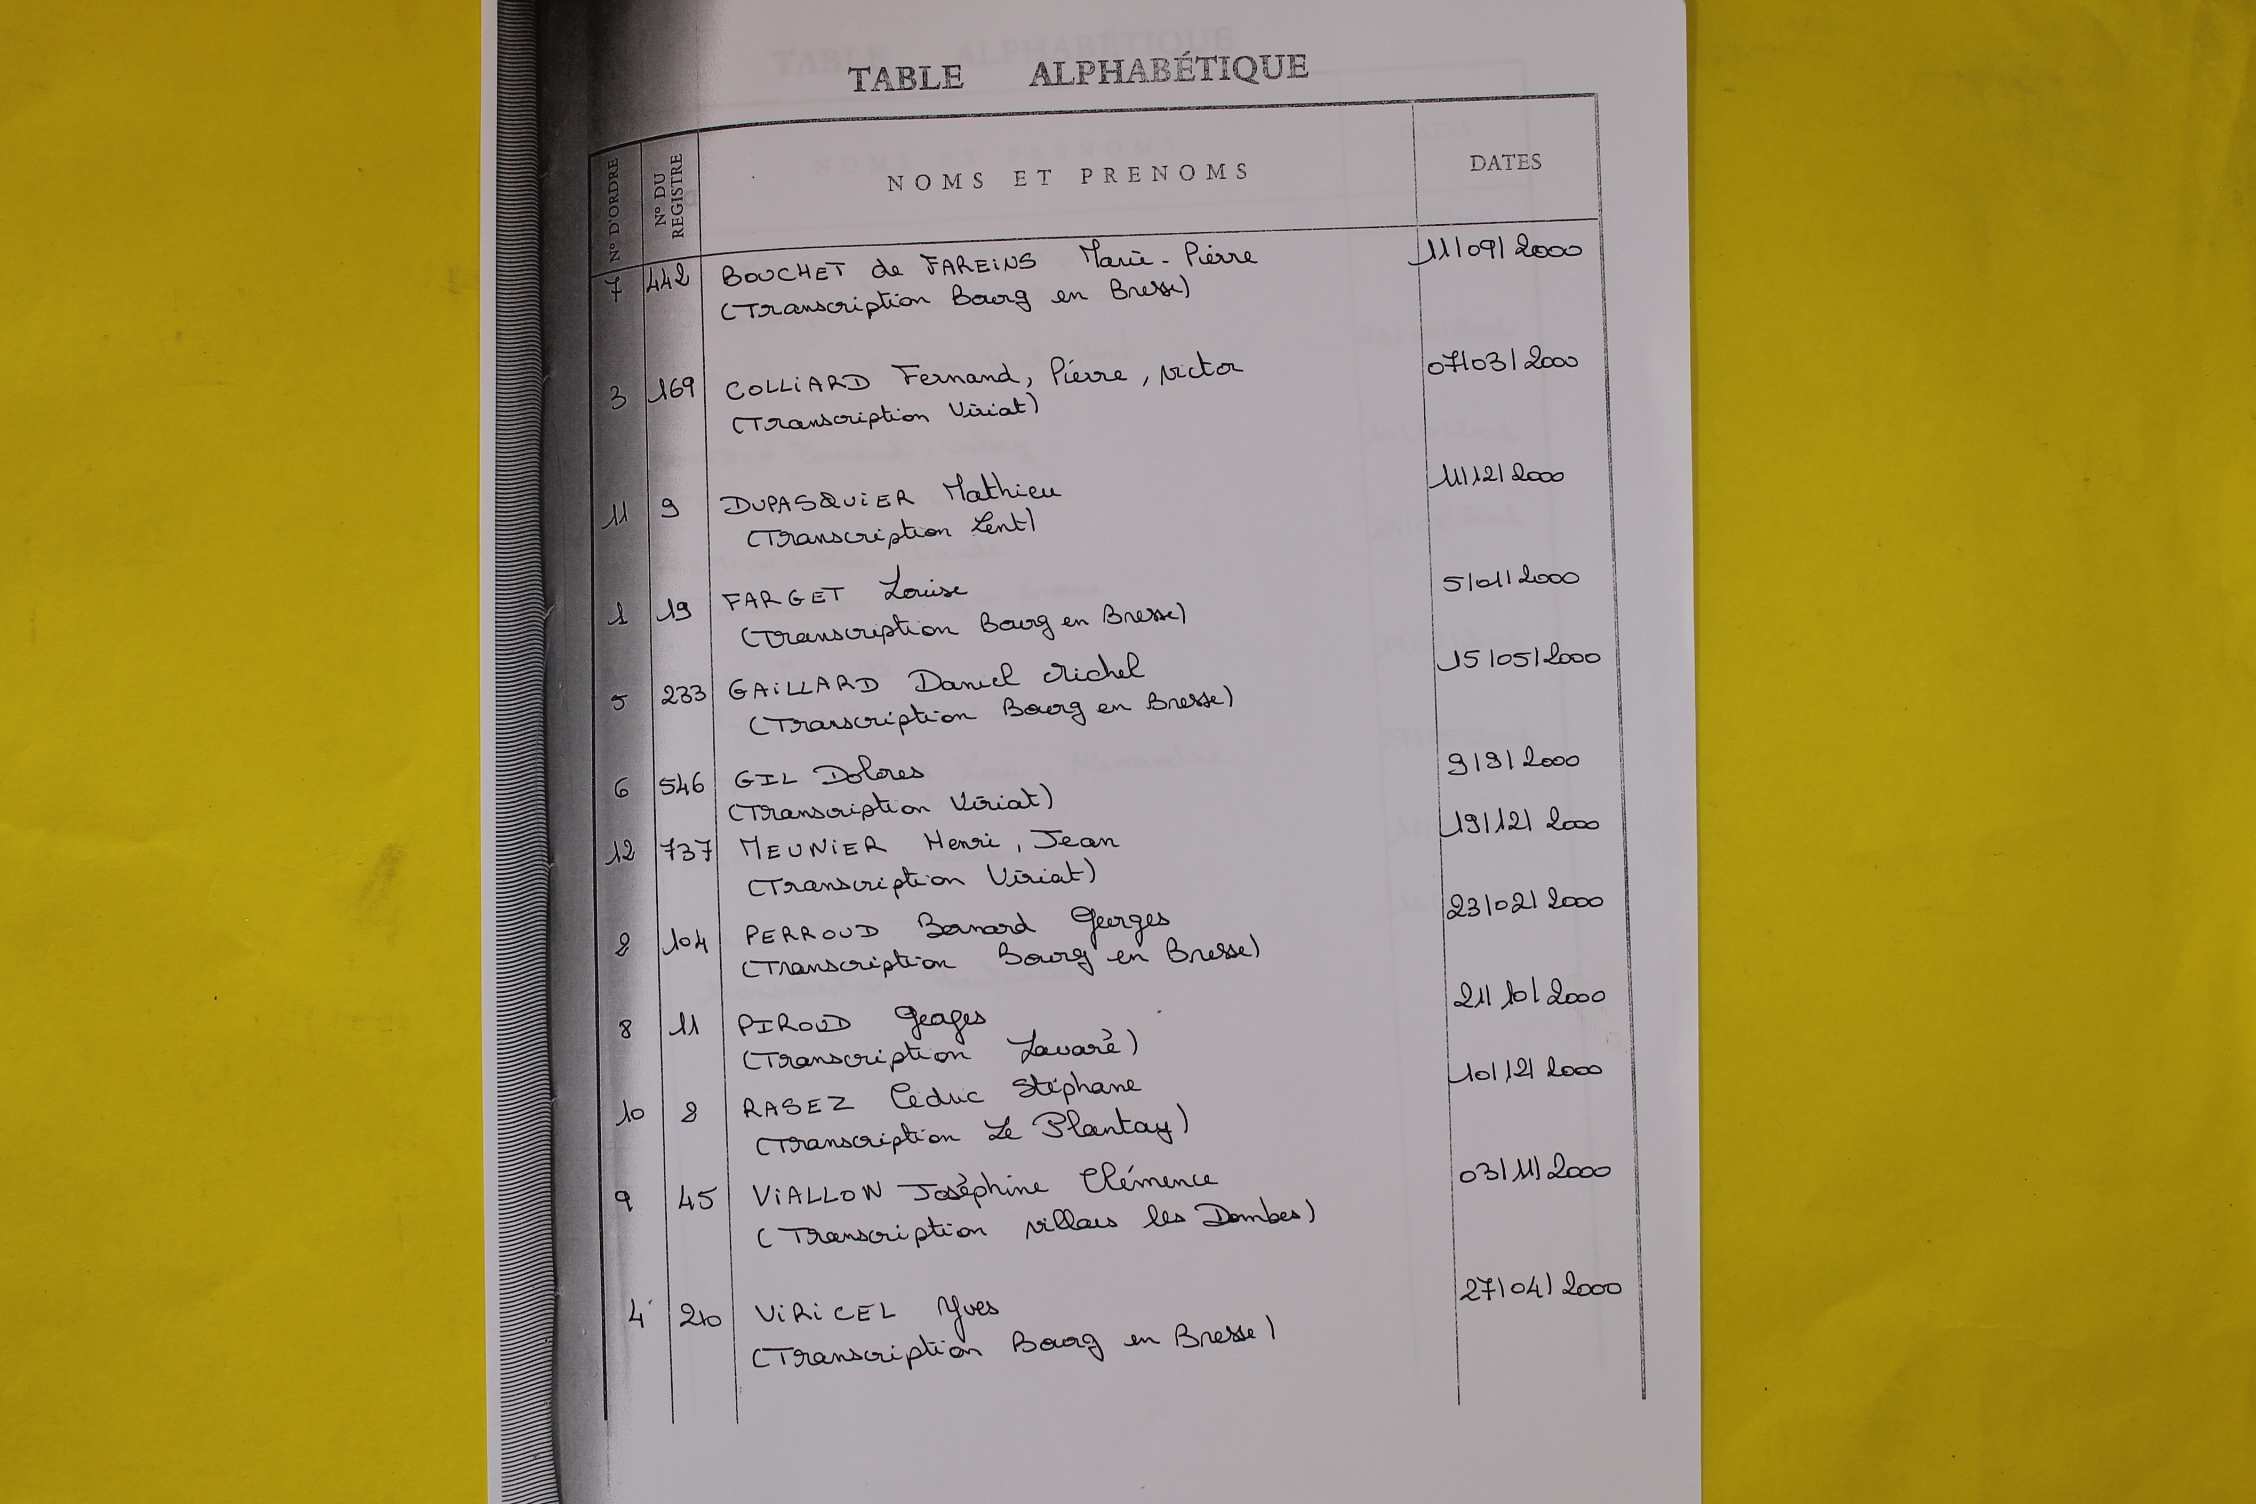 TABLE ALPHABÉTIQUE
N° D'ORDRE N° DU REGISTRE NOMS ET PRENOMS DATES
7 442 BOUCHET de FAREINS Marie-Pierre 11/09/2000
(Transcription Bourg en Bresse)
3 169 COLLIARD Fernand, Pierre, victor 07/03/2000
(Transcription Viriat)
11 9 DUPASQUIER Mathieu 11/12/2000
(Transcription Lent)
1 19 FARGET Louise 5/01/2000
(Transcription Bourg en Bresse)
5 233 GAILLARD Daniel Michel 15/05/2000
(Transcription Bourg en Bresse)
6 546 GIL Dolores 9/9/2000
(Transcription Viriat)
12 737 MEUNIER Henri, Jean 19/12/2000
(Transcription Viriat)
2 104 PERROUD Bernard Georges 23/02/2000
(Transcription Bourg en Bresse)
8 11 PIROUD Georges 21/10/2000
(Transcription Lavaré)
10 8 RASEZ Cédric Stéphane 10/12/2000
(Transcription Le Plantay)
9 45 VIALLON Joséphine Clémence 03/11/2000
(Transcription villars les Dombes)
4 210 VIRICEL Yves 27/04/2000
(Transcription Bourg en Bresse)